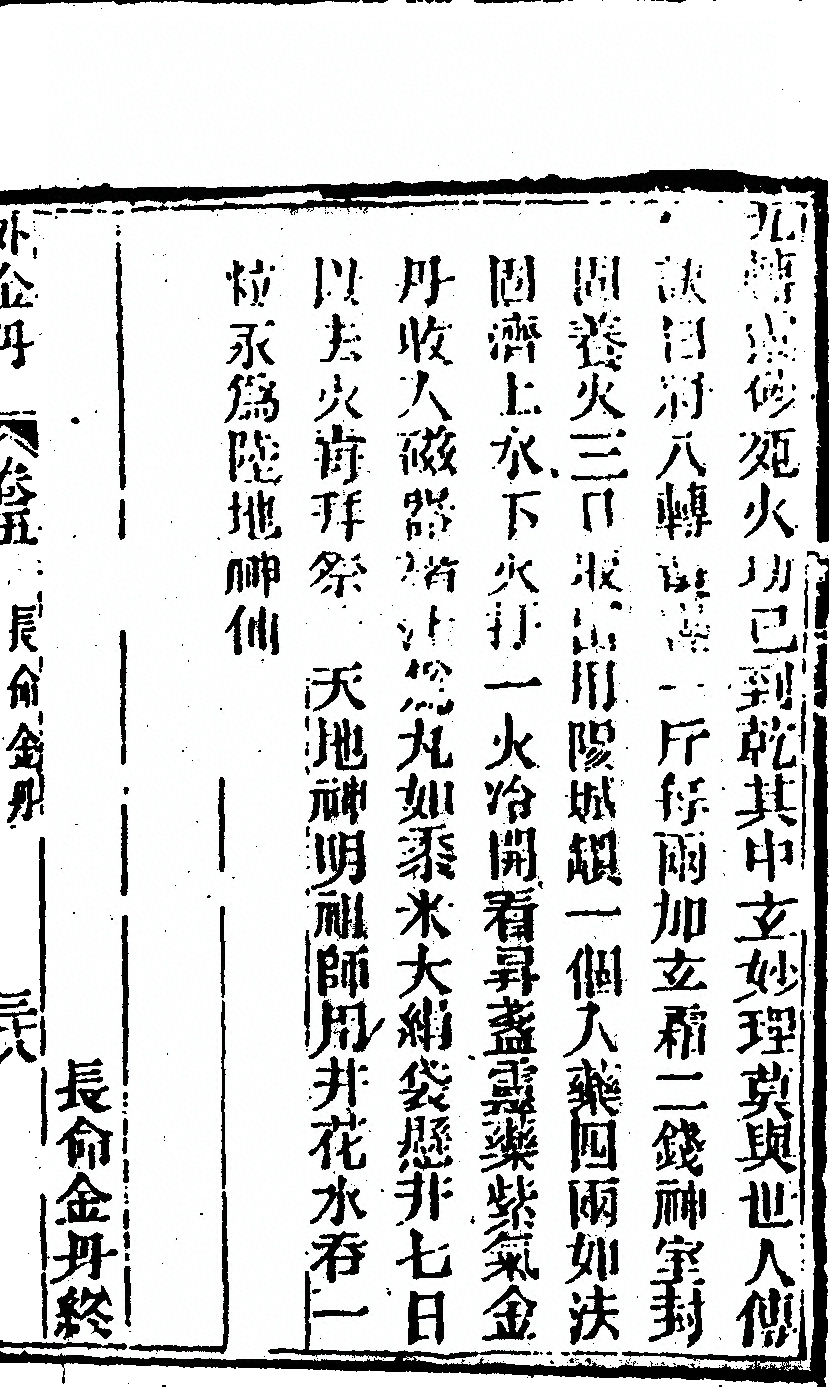 九轉靈砂死火功已到乾其中玄妙理莫與世人傳
訣曰將八轉靈藥一斤每兩加玄霜二錢神室封
固養火三日取出用陽城鍋一個入藥四兩如法
固濟上水下火打一火冷開看昇盞靈藥紫氣金
丹收入磁器棗肉為丸如黍米大絹袋懸井七日
以去火毒拜祭 天地神明祖師用井花水吞一
粒永爲陸地神仙
長命金丹終
外金丹 卷五 長命金丹